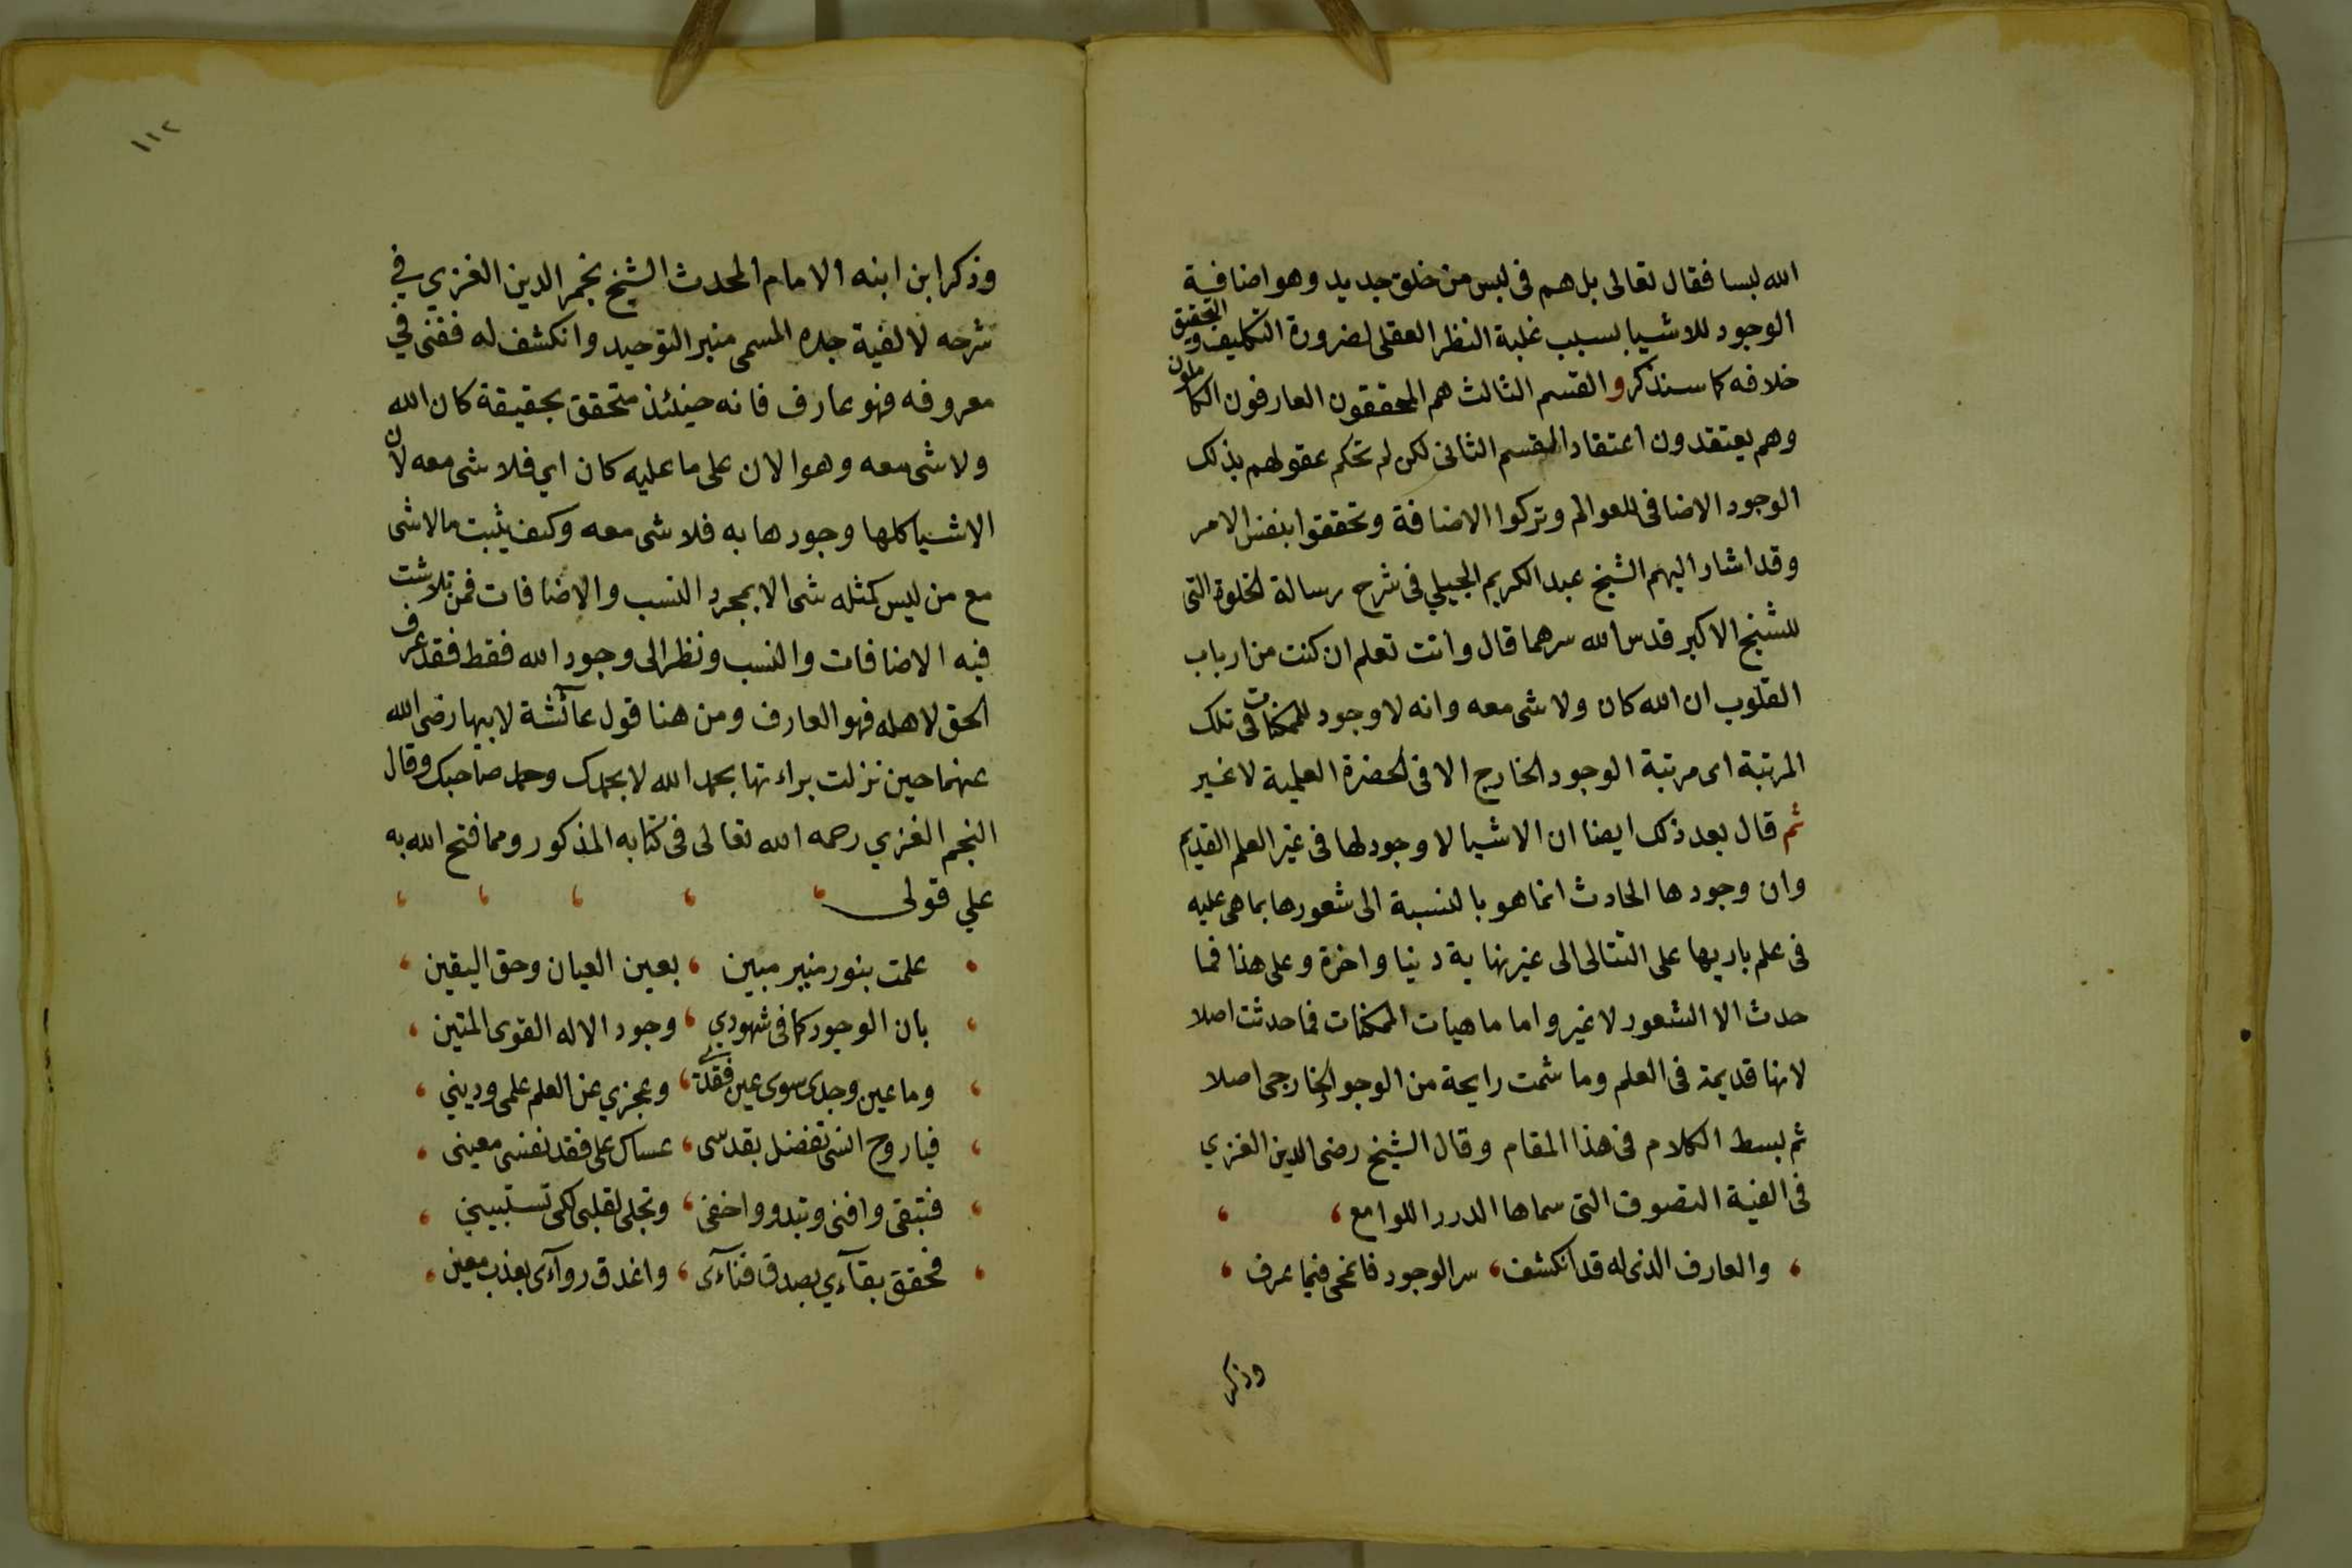 الله لبسا فقال تعالى بل هم فى لبس من خلق جديد وهو اضافة
الوجود للاشيا بسبب غلبة النظر العقلى لضرورة التكليف والتحقيق
خلافه كما سنذكر والقسم الثالث هم المحققون العارفون الكاملون
وهم يعتقدون اعتقاد القسم الثانى لكن لم تحكم عقولهم بذلك
الوجود الاضافى للعوالم وتركوا الاضافة وتحققوا بنفس الامر
وقد اشار اليهم الشيخ عبد الكريم الجيلي فى شرح رسالة الخلوة التى
للشيخ الاكبر قدس الله سرهما قال وانت تعلم ان كنت من ارباب
القلوب ان الله كان ولا شى معه وانه لا وجود للممكنات فى تلك
المرتبة اى مرتبة الوجود الخارج الا فى الحضرة العلمية لا غير
ثم قال بعد ذلك ايضا ان الاشيا لا وجود لها فى غير العلم القديم
وان وجودها الحادث انما هو بالنسبة الى شعورها بما هى عليه
فى علم باريها على التتالى الى غير نهاية دنيا واخرة وعلى هذا فما
حدث الا الشعور لا غير واما ماهيات الممكنات فما حدثت اصلا
لانها قديمة فى العلم وما شمت رايحة من الوجود الخارجى اصلا
ثم بسط الكلام فى هذا المقام وقال الشيخ رضى الدين الغزي
فى الفية التصوف التى سماها الدرر اللوامع
والعارف الذى له قد انكشف ، سر الوجود فانمحى فيما عرف
وذكر
١١٢
وذكر ابن ابنه الامام المحدث الشيخ نجم الدين الغزي في
شرحه لالفية جده المسمى منبر التوحيد وانكشف له ففنى في
معروفه فهو عارف فانه حينئذ متحقق بحقيقة كان الله
ولا شى معه وهو الان على ما عليه كان اي فلا شى معه لان
الاشيا كلها وجودها به فلا شى معه وكيف يثبت مالا شى
مع من ليس كمثله شى الا بمجرد النسب والاضافات فمن تلاشت
فيه الاضافات والنسب ونظر الى وجود الله فقط فقد عرف
الحق لاهله فهو العارف ومن هنا قول عائشة لابيها رضى الله
عنهما حين نزلت براءتها بحمد الله لا بحمدك وحمد صاحبك وقال
النجم الغزي رحمه الله تعالى فى كتابه المذكور ومما فتح الله به
علي قولى
علمت بنور منير مبين ، بعين العيان وحق اليقين
بان الوجود كما فى شهودي ، وجود الاله القوى المتين
وما عين وجدى سوى عين فقدي ، وعجزي عن العلم علمى وديني
فيا روح انسى تفضل بقدسى ، عساك على فقد نفسى معينى
فتبقى وافنى وتبدو واخفى ، وتجلى لقلبى لكى تستبيني
فحقق بقآءي بصدق فنآءى ، واغدق روآءى بعذب معين